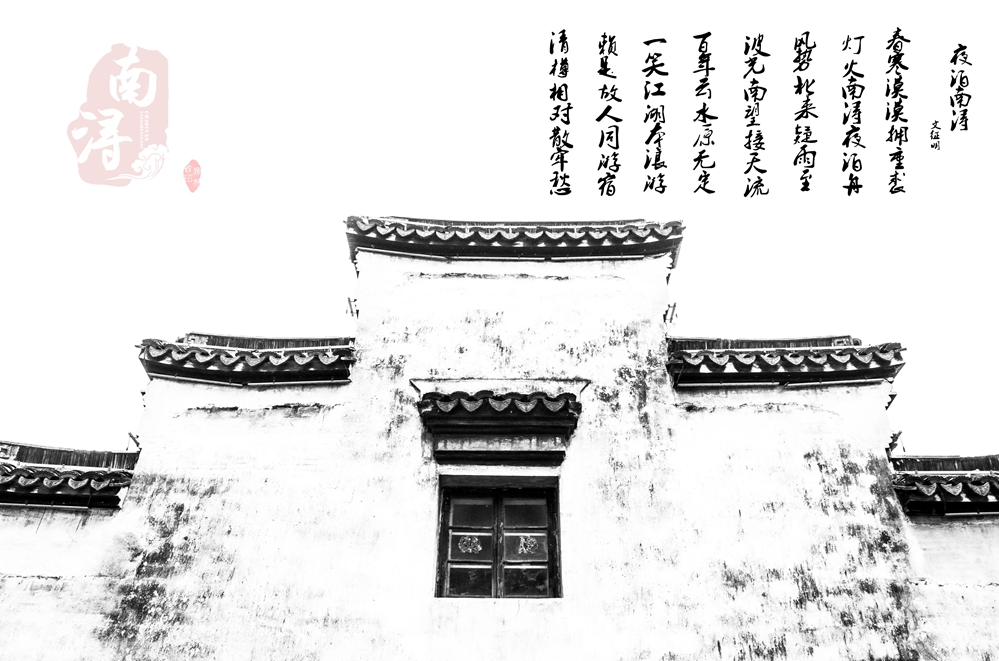 夜泊南浔
文征明
春寒漠漠拥重裘
灯火南浔夜泊舟
风势北来疑雨至
波光南望接天流
百年云水原无定
一笑江湖本浪游
赖是故人同游宿
清樽相对散牢愁
南浔